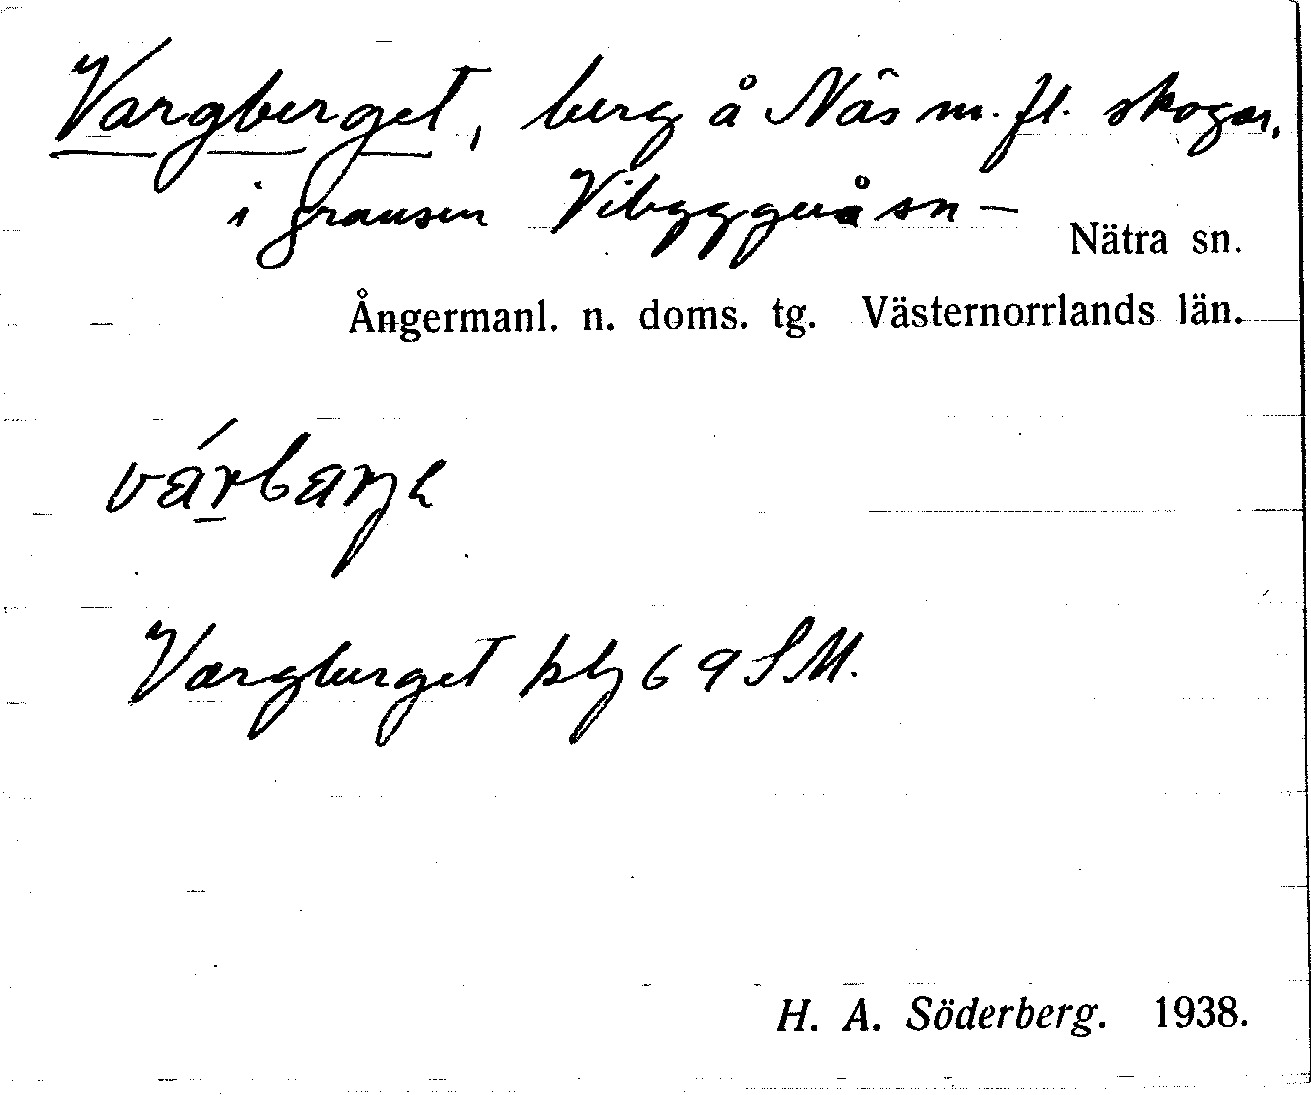 Vargberget, berg å Näs m. fl. skogar,
i gränsen Vibyggerå sn –
Nätra sn.
Ångermanl. n. doms. tg. Västernorrlands län.
Vargberget blj 69 SM.
H. A. Söderberg. 1938.